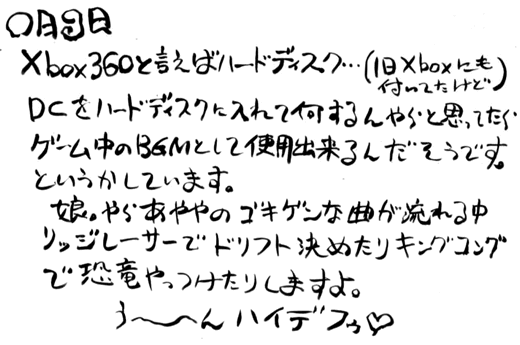 ○月9日
Xbox360と言えばハードディスク…(旧Xboxにも
付いてたけど)
DCをハードディスクに入れて何するんやらと思ってたら
ゲーム中のBGMとして使用出来るんだそうです。
というかしています。
娘。やらあややのゴキゲンな曲が流れる中
リッジレーサーでドリフト決めたりキングコング
で恐竜やっつけたりしますよ。
う〜〜んハイデフゥ♡